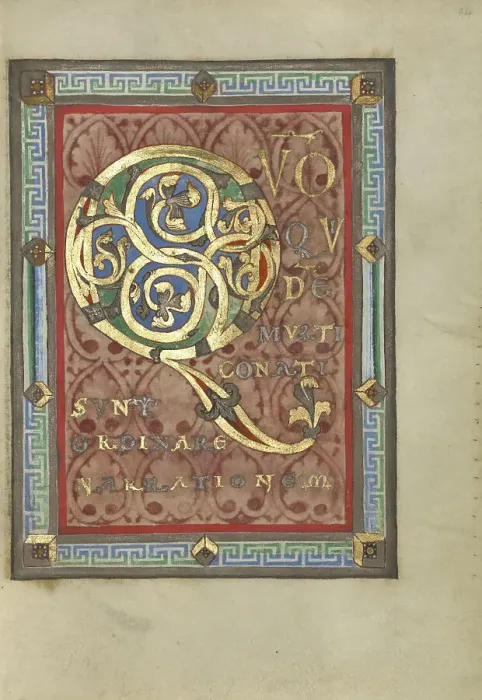 QVO
QV
DE
MVLTI
CONATI
SVNT
ORDINARE
NARRATIONEM